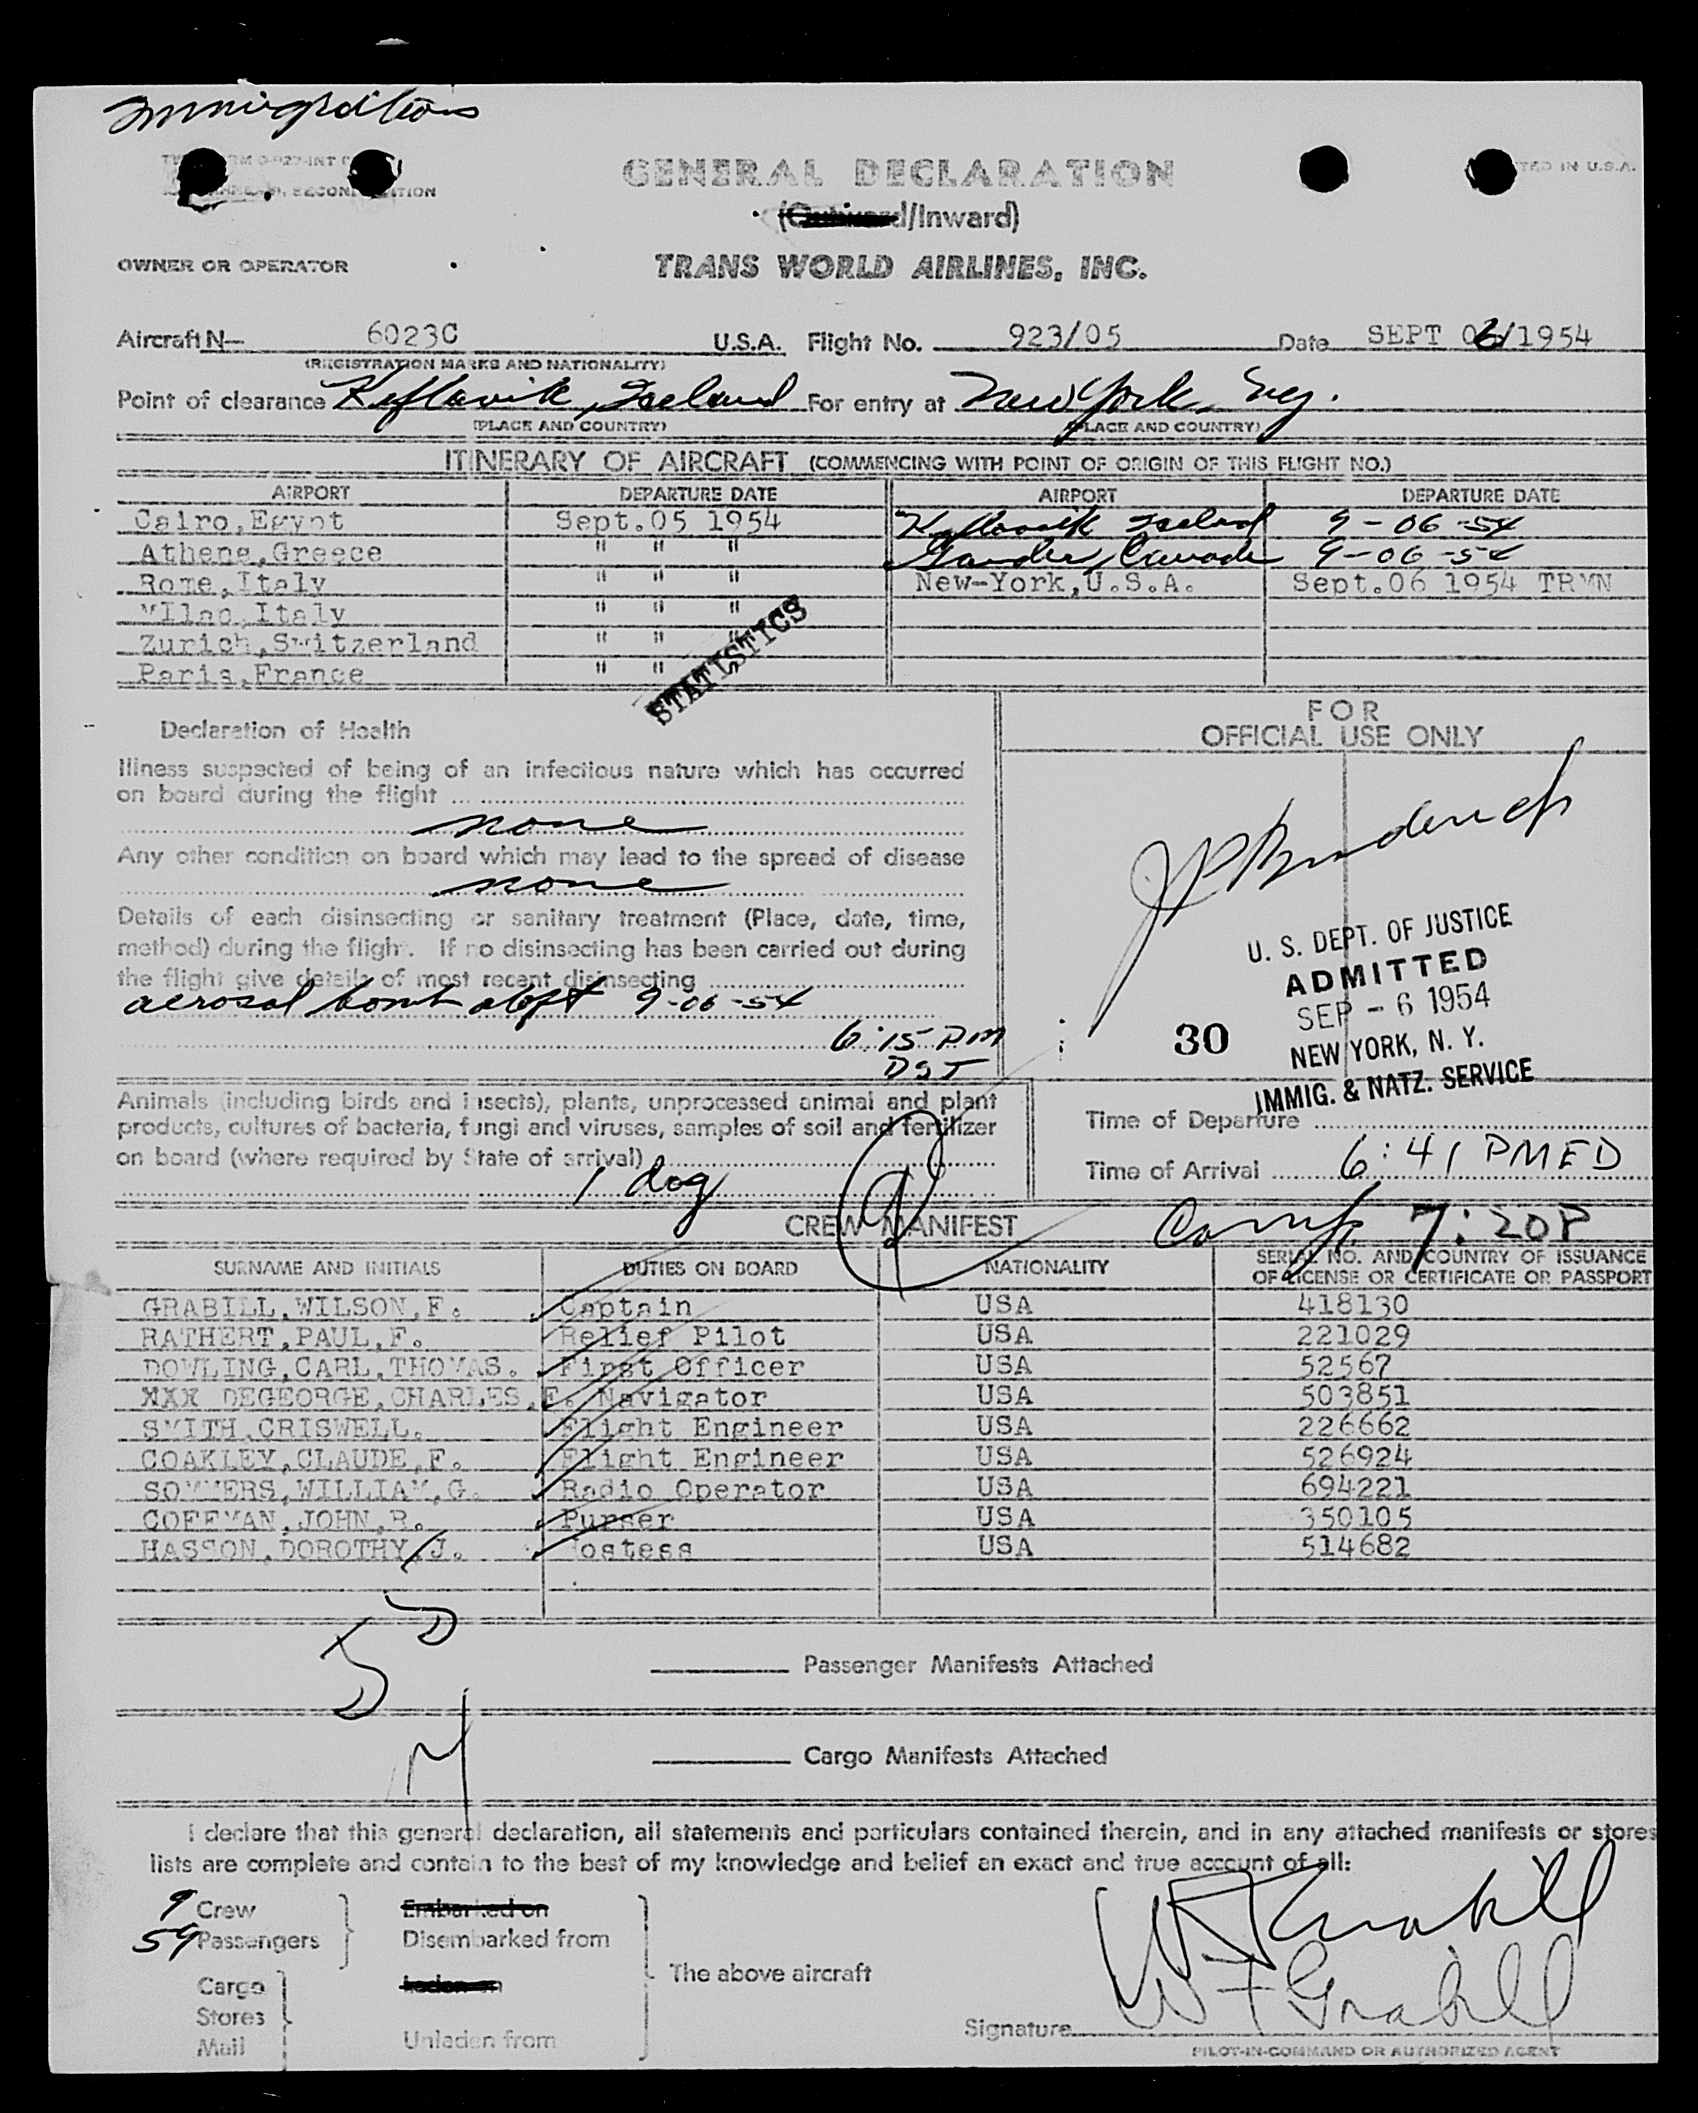 Immigration
GENERAL DECLARATION
(Outward/Inward)
OWNER OR OPERATOR
TRANS WORLD AIRLINES, INC.
Aircraft N— 6023C U.S.A. Flight No. 923/05 Date SEPT 06/1954
(REGISTRATION MARKS AND NATIONALITY)
Point of clearance Keflavik, Iceland For entry at New York, N.Y.
(PLACE AND COUNTRY) (PLACE AND COUNTRY)
ITINERARY OF AIRCRAFT (COMMENCING WITH POINT OF ORIGIN OF THIS FLIGHT NO.)
AIRPORT DEPARTURE DATE AIRPORT DEPARTURE DATE
Cairo,Egypt Sept.05 1954 Keflavik Iceland 9-06-54
Athens,Greece " " " Gander, Canada 9-06-54
Rome,Italy " " " New-York,U.S.A. Sept.06 1954 TRMN
MIlao,Italy " " "
Zurich,Switzerland " " "
Paris,France " "
STATISTICS
Declaration of Health
Illness suspected of being of an infectious nature which has occurred
on board during the flight
none
Any other condition on board which may lead to the spread of disease
none
Details of each disinsecting or sanitary treatment (Place, date, time,
method) during the flight. If no disinsecting has been carried out during
the flight give details of most recent disinsecting
aerosol bomb dept 9-06-54
6:15 PM
DST
FOR
OFFICIAL USE ONLY
U. S. DEPT. OF JUSTICE
ADMITTED
SEP - 6 1954
30
NEW YORK, N. Y.
IMMIG. & NATZ. SERVICE
Animals (including birds and insects), plants, unprocessed animal and plant
products, cultures of bacteria, fungi and viruses, samples of soil and fertilizer
on board (where required by State of arrival)
1 dog
Time of Departure
Time of Arrival 6:41 PMED
Comp 7:20P
CREW MANIFEST
SURNAME AND INITIALS DUTIES ON BOARD NATIONALITY SERIAL NO. AND COUNTRY OF ISSUANCE
OF LICENSE OR CERTIFICATE OR PASSPORT
GRABILL,WILSON,F. Captain USA 418130
RATHERT,PAUL,F. Relief Pilot USA 221029
DOWLING,CARL,THOMAS. First Officer USA 52567
XXX DEGEORGE,CHARLES,E. Navigator USA 503851
SMITH,CRISWELL. Flight Engineer USA 226662
COAKLEY,CLAUDE,F. Flight Engineer USA 526924
SOMMERS,WILLIAM,G. Radio Operator USA 694221
COFFMAN,JOHN,R. Purser USA 350105
HASSON,DOROTHY,J. Hostess USA 514682
Passenger Manifests Attached
Cargo Manifests Attached
I declare that this general declaration, all statements and particulars contained therein, and in any attached manifests or stores
lists are complete and contain to the best of my knowledge and belief an exact and true account of all:
9 Crew Embarked on
54 Passengers Disembarked from
The above aircraft
Cargo Laden on
Stores
Mail Unladen from
WF Grabill
WF Grabill
Signature
PILOT-IN-COMMAND OR AUTHORIZED AGENT